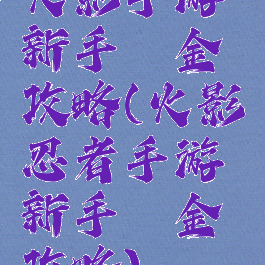 火影手游
新手 金
攻略(火影
忍者手游
新手 金
攻略)